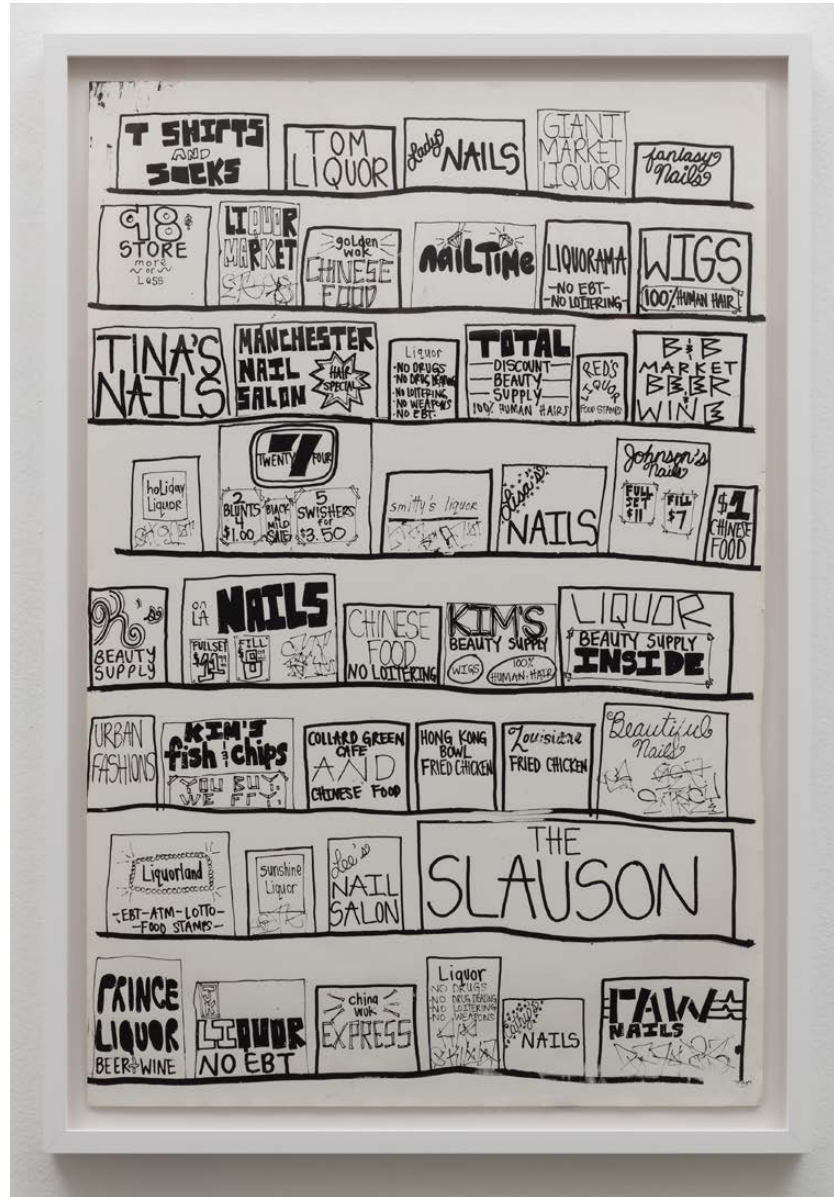 T SHIRTS
AND
SOCKS
TOM
LIQUOR
Lady
NAILS
GIANT
MARKET
LIQUOR
fantasy
Nails
98¢
STORE
more
or
LESS
LIQUOR
MARKET
golden
wok
CHINESE
FOOD
NAIL TIME
LIQUORAMA
-NO EBT-
-NO LOITERING-
WIGS
100% HUMAN HAIR
TINA'S
NAILS
MANCHESTER
NAIL
SALON
HAIR
SPECIAL
Liquor
-NO DRUGS
-NO DRUG DEALING
-NO LOITERING
-NO WEAPONS
-NO EBT-
TOTAL
DISCOUNT
BEAUTY
SUPPLY
100% HUMAN HAIRS
RED'S
LIQUOR
FOOD STAMPS
B & B
MARKET
BEER
WINE
holiday
Liquor
TWENTY 7 FOUR
2
BLUNTS
4
$1.00
BLACK
N
MILD
SALE
5
SWISHERS
for
$3.50
smitty's liquor
Lisa's
NAILS
Johnson's
Nails
FULL
SET
$11
FILL
$7
$1
CHINESE
FOOD
K's
BEAUTY
SUPPLY
LA
NAILS
FULLSET
FILL
CHINESE
FOOD
NO LOITERING
KIM'S
BEAUTY SUPPLY
WIGS
100%
HUMAN-HAIR
LIQUOR
BEAUTY SUPPLY
INSIDE
URBAN
FASHIONS
KIM'S
fish & chips
YOU BUY.
WE FRY.
COLLARD GREEN
CAFE
AND
CHINESE FOOD
HONG KONG
BOWL
FRIED CHICKEN
Louisiana
FRIED CHICKEN
Beautiful
Nails
Liquorland
-EBT-ATM-LOTTO-
-FOOD STAMPS-
sunshine
Liquor
Lee's
NAIL
SALON
THE
SLAUSON
PRINCE
LIQUOR
BEER+WINE
LIQUOR
NO EBT
china
wok
EXPRESS
Liquor
NO DRUGS
-NO DRUG DEALING
-NO LOITERING
-NO WEAPONS
NAILS
NAILS